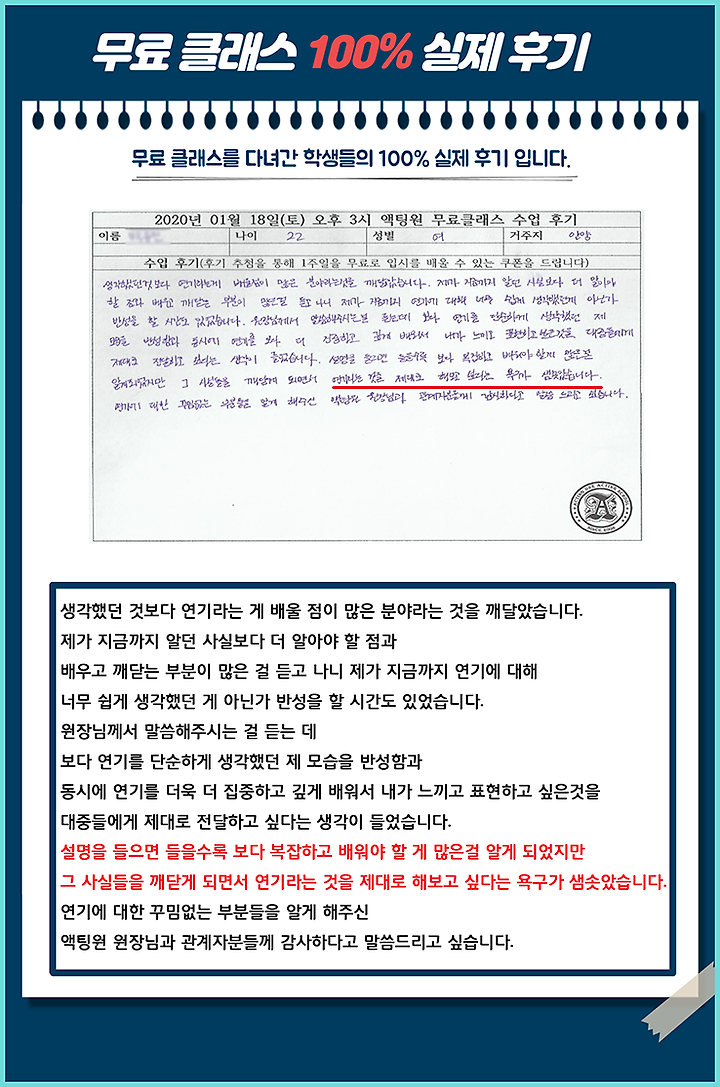 무료 클래스 100% 실제 후기
무료 클래스를 다녀간 학생들의 100% 실제 후기 입니다.
2020년 01월 18일(토) 오후 3시 액팅원 무료클래스 수업 후기
이름 나이 22 성별 여 거주지 안양
수업 후기(후기 추첨을 통해 1주일을 무료로 입시를 배울 수 있는 쿠폰을 드립니다)
생각했던것 보다 연기라는게 배울점이 많은 분야라는것을 깨달았습니다. 제가 지금까지 알던 사실보다 더 알아야
할 점과 배우고 깨닫는 부분이 많은걸 듣고 나니 제가 지금까지 연기에 대해 너무 쉽게 생각했던게 아닌가
반성을 할 시간도 있었습니다. 원장님께서 말씀해주시는걸 듣는데 보다 연기를 단순하게 생각했던 제
모습을 반성함과 동시에 연기를 더욱 더 집중하고 깊게 배워서 내가 느끼고 표현하고 싶은것을 대중들에게
제대로 전달하고 싶다는 생각이 들었습니다. 설명을 들으면 들을수록 보다 복잡하고 배워야 할게 많은걸
알게되었지만 그 사실들을 깨닫게 되면서 연기라는 것을 제대로 해보고 싶다는 욕구가 샘솟았습니다.
연기에 대한 꾸밈없는 부분들을 알게 해주신 액팅원 원장님과 관계자분들께 감사하다고 말씀 드리고 싶습니다.
생각했던 것보다 연기라는 게 배울 점이 많은 분야라는 것을 깨달았습니다.
제가 지금까지 알던 사실보다 더 알아야 할 점과
배우고 깨닫는 부분이 많은 걸 듣고 나니 제가 지금까지 연기에 대해
너무 쉽게 생각했던 게 아닌가 반성을 할 시간도 있었습니다.
원장님께서 말씀해주시는 걸 듣는 데
보다 연기를 단순하게 생각했던 제 모습을 반성함과
동시에 연기를 더욱 더 집중하고 깊게 배워서 내가 느끼고 표현하고 싶은것을
대중들에게 제대로 전달하고 싶다는 생각이 들었습니다.
설명을 들으면 들을수록 보다 복잡하고 배워야 할 게 많은걸 알게 되었지만
그 사실들을 깨닫게 되면서 연기라는 것을 제대로 해보고 싶다는 욕구가 샘솟았습니다.
연기에 대한 꾸밈없는 부분들을 알게 해주신
액팅원 원장님과 관계자분들께 감사하다고 말씀드리고 싶습니다.